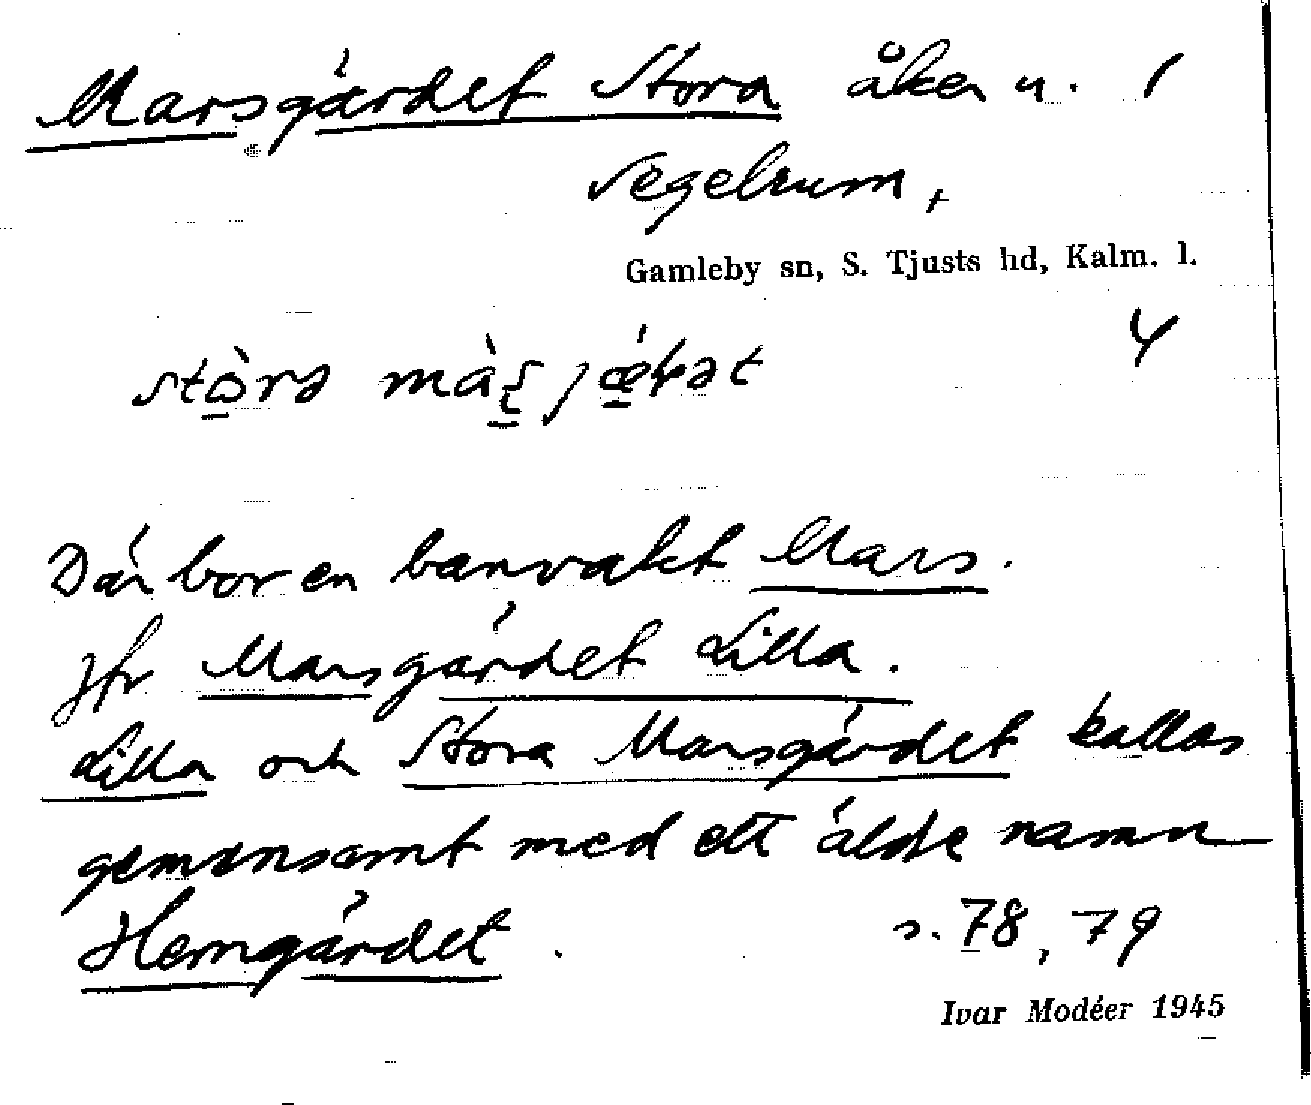 Marsgärdet Stora åker u. 1
Segelrum,
Gamleby sn, S. Tjusts hd, Kalm. l.
4
Där bor en banvakt Mars.
Jfr Marsgärdet Lilla.
Lilla och Stora Marsgärdet kallas
gemensamt med ett äldre namn
Hemgärdet. s. 78, 79
Ivar Modéer 1945